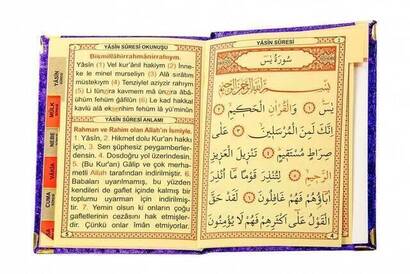 YÂSÎN SÛRESİ OKUNUŞU
Bismillâhirrahmânirrahıym.
Yâsîn (1) Vel kur'ânil hakiym (2) İnne-
ke le minel murseliyn (3) Alâ sırâtım
müstekıym (4) Tenziylel aziyzirrahıym
(5) Li tünzira kavmem mâ ünzira âbâ-
ühüm fehüm ğâfilûn (6) Le kad hakkal
kavlü alâ ekserihim fehüm lâ yü'minûn
YÂSÎN SÛRESİ ANLAMI
Rahman ve Rahim olan Allah'ın İsmiyle.
1. Yâsîn, 2. Hikmet dolu Kur'an hakkı
için, 3. Sen şüphesiz peygamberler-
densin. 4. Dosdoğru yol üzerindesin.
5. (Bu Kur'an) Gâlip ve çok merha-
metli Allah tarafından indirilmiştir. 6.
Babaları uyarılmamış, bu yüzden
kendileri de gaflet içinde kalmış bir
toplumu uyarman için indirilmiş-
tir. 7. Yemin olsun ki onların çoğu
gafletlerinin cezasını hak etmişler-
dir. Çünkü onlar îman etmiyorlar.
YÂSÎN
MÜLK
NEBE
VÂKIA
CUMA
YÂSÎN SÛRESİ
سُورَةُ يٰسٓ
بِسْمِ اللهِ الرَّحْمٰنِ الرَّحِيمِ
يٰسٓ ﴿١﴾ وَالْقُرْاٰنِ الْحَكِيمِ ﴿٢﴾
اِنَّكَ لَمِنَ الْمُرْسَلِينَ ﴿٣﴾ عَلٰى
صِرَاطٍ مُسْتَقِيمٍ ﴿٤﴾ تَنْزِيلَ الْعَزِيزِ
الرَّحِيمِ ﴿٥﴾ لِتُنْذِرَ قَوْمًا مَٓا اُنْذِرَ
اٰبَٓاؤُهُمْ فَهُمْ غَافِلُونَ ﴿٦﴾ لَقَدْ حَقَّ
الْقَوْلُ عَلٰٓى اَكْثَرِهِمْ فَهُمْ لَا يُؤْمِنُونَ